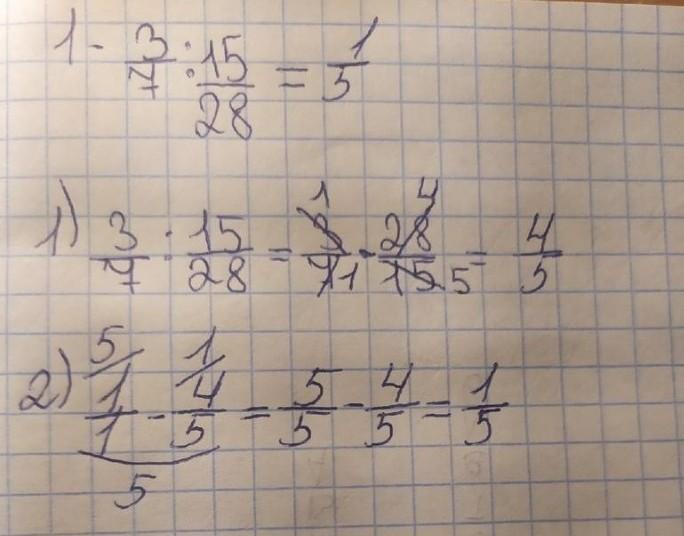 1 - 3/7 : 15/28 = 1/5
1) 3/7 : 15/28 = 3/7 1 1 · 28/15 4 5 = 4/5
2) 5/ 1/1 - 1/ 4/5 = 5/5 - 4/5 = 1/5
5